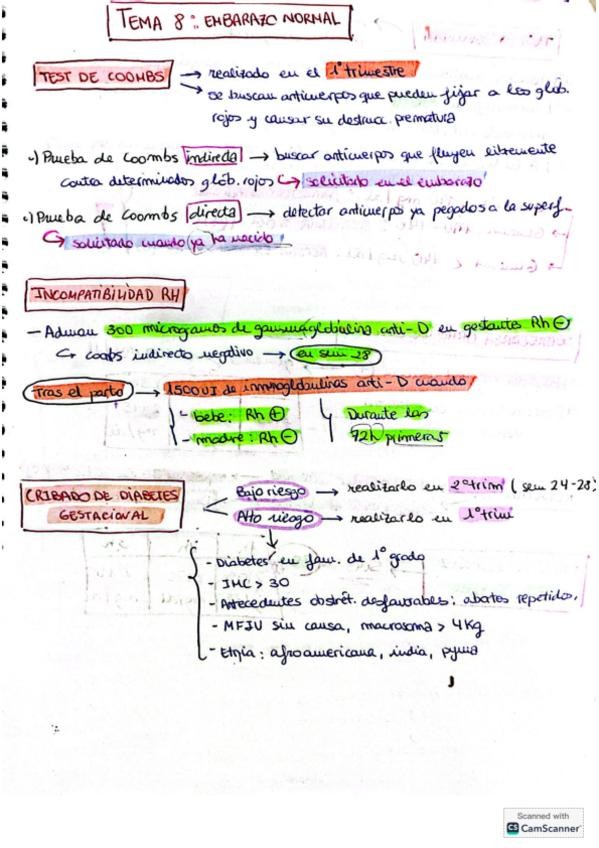 TEMA 8: EMBARAZO NORMAL
TEST DE COOMBS → realizado en el 1º trimestre
→ se buscan anticuerpos que pueden fijar a los glób. rojos y causar su destrucc. prematura
·) Prueba de Coombs indirecta → buscar anticuerpos que fluyen libremente
contra determinados glób. rojos ↳ solicitado en el embarazo
·) Prueba de Coombs directa → detectar anticuerpos ya pegados a la superf.
↳ solicitado cuando ya ha nacido
INCOMPATIBILIDAD RH
- Admon 300 microgramos de gammaglobulina anti-D en gestantes Rh ⊖
↳ coombs indirecto negativo → en sem 28
Tras el parto → 1500 UI de inmunoglobulinas anti-D cuando
- bebe: Rh ⊕
- madre: Rh ⊖
Durante las
72h primeras
CRIBADO DE DIABETES
GESTACIONAL
Bajo riesgo → realizarlo en 2º trim (sem 24-28)
Alto riesgo → realizarlo en 1º trim
- Diabetes en fam. de 1º grado
- IMC > 30
- Antecedentes obstét. desfavorables: abortos repetidos,
- MFIU sin causa, macrosoma > 4Kg
- Etnia: afroamericana, india, pyma
Scanned with
CS CamScanner